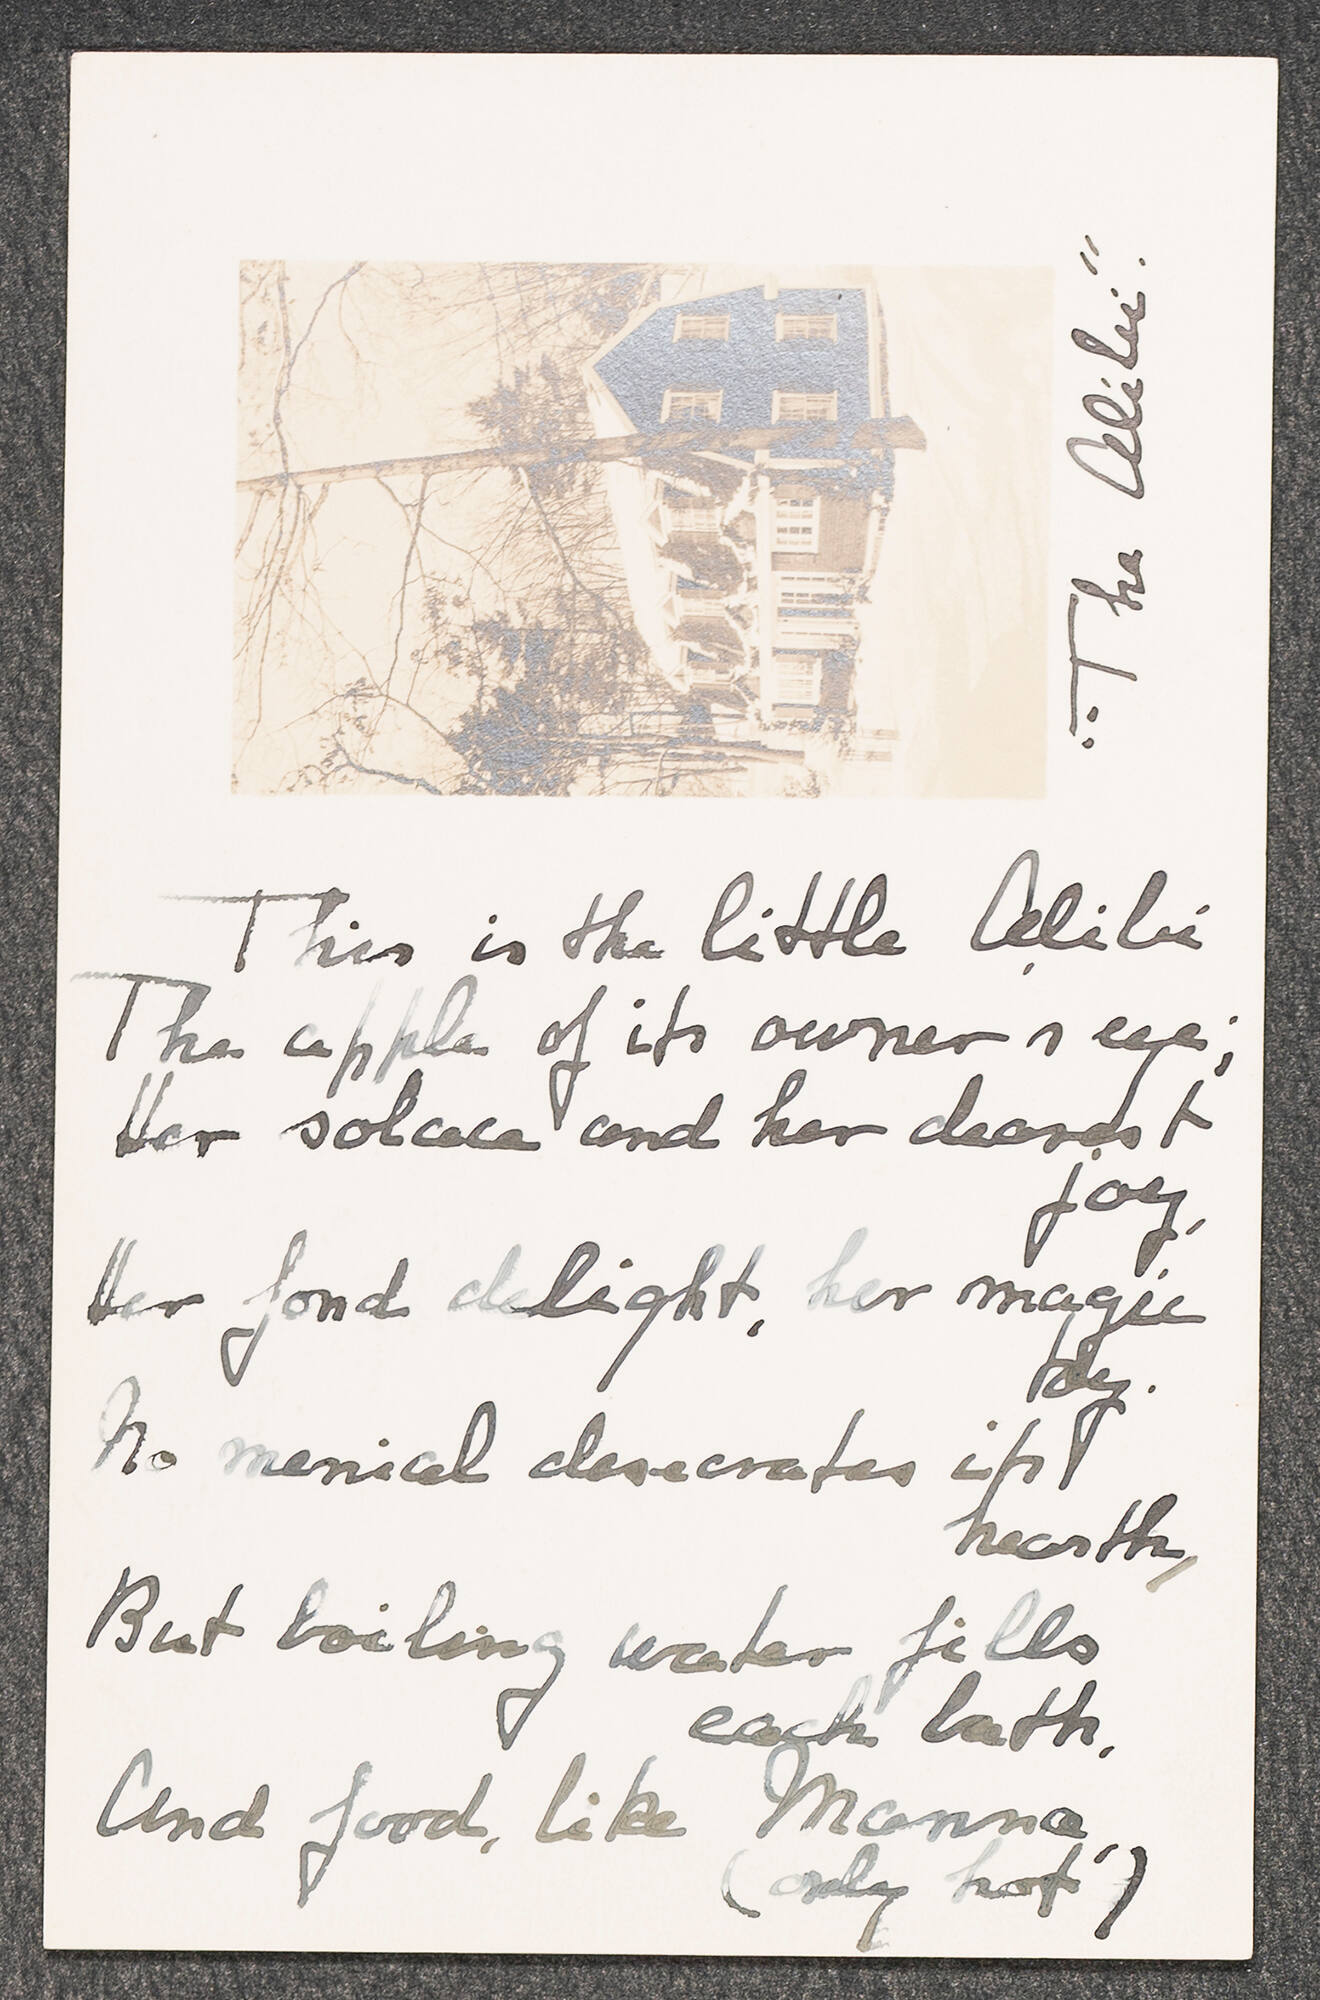 "The Alibi".
This is the little Alibi
The apple of its owner's eye;
Her solace and her dearest
joy,
Her fond delight, her magic
toy.
No menial desecrates its
hearth,
But boiling water fills
each bath,
And food, like Manna,
(only hot)